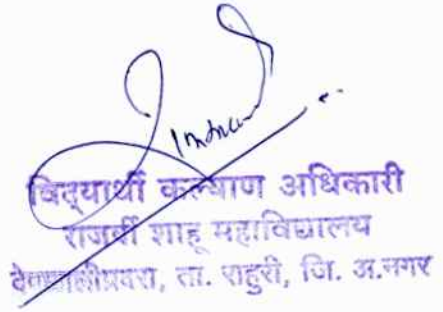 विद्यार्थी कल्याण अधिकारी
राजर्षी शाहू महाविद्यालय
देवळालीप्रवरा, ता. राहुरी, जि. अ.नगर